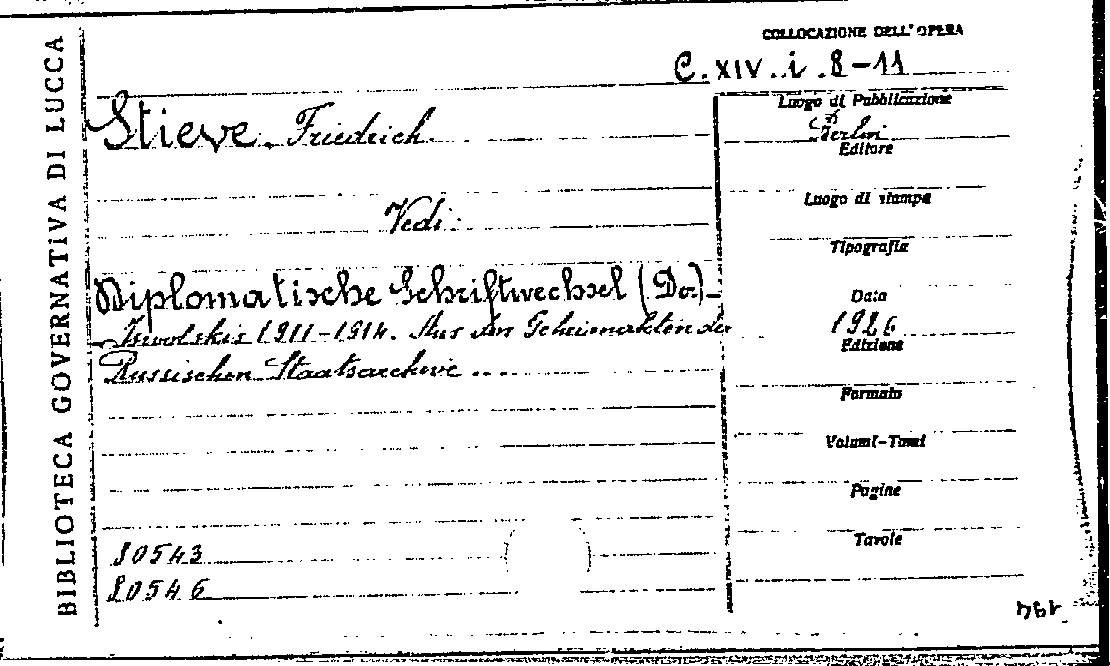 BIBLIOTECA GOVERNATIVA DI LUCCA
COLLOCAZIONE DELL'OPERA
C. XIV. i. 8-11
Stieve, Friedrich.
Vedi:
Diplomatische Schriftwechsel (Der)-
Iswolskis 1911-1914. Aus den Geheimakten der
Russischen Staatsarchive ...
80543
80546
Luogo di Pubblicazione
Berlin
Editore
Luogo di stampa
Tipografia
Data
1926
Edizione
Formato
Volumi-Tomi
Pagine
Tavole